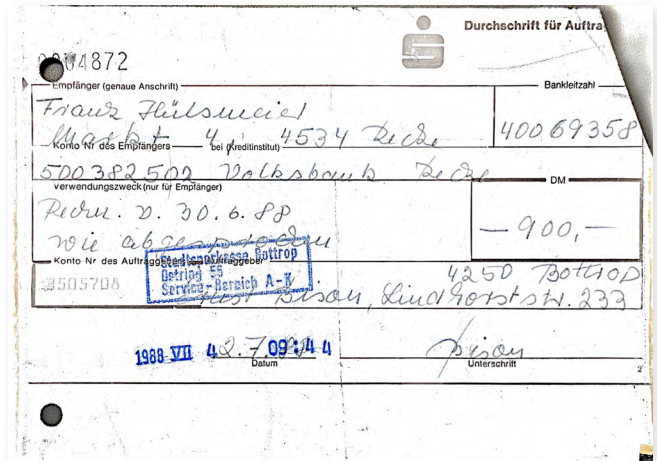 Durchschrift für Auftra
0004872
Empfänger (genaue Anschrift)
Bankleitzahl
Franz Hülsmeier
Markt 4, 4534 Recke
40069358
Konto Nr des Empfängers bei (Kreditinstitut)
500382502 Volksbank Recke
Verwendungszweck (nur für Empfänger)
DM
Rechn. v. 30.6.88
wie abgesprochen
— 900,—
Konto Nr des Auftraggebers Auftraggeber
Stadtsparkasse Bottrop
Ostring 55
Service-Bereich A-K
3505708
4250 Bottrop
Bison, Lindhorststr. 233
1988 VII 4 2.7.88 09:44
Bison
Datum
Unterschrift
2